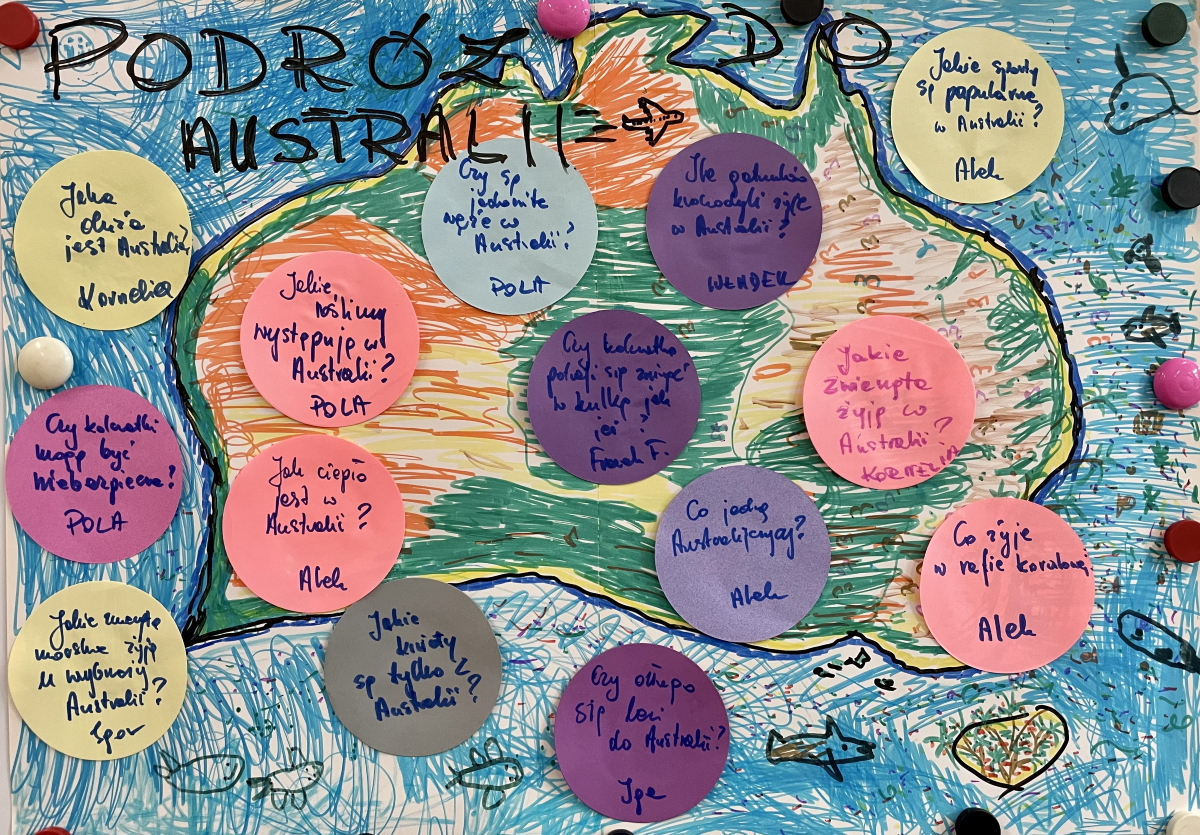 PODRÓŻ DO
AUSTRALII
Jakie sporty
są popularne
w Australii?
Alek
Jaka
duża
jest Australia
Kornelia
Czy są
jadowite
węże w
Australii?
POLA
Ile gatunków
krokodyli żyje
w Australii?
WŁADEK
Jakie
rośliny
występują w
Australii?
POLA
Czy kolczatka
potrafi się zwinąć
w kulkę jak
jeż?
Franek F.
Jakie
zwierzęta
żyją w
Australii?
KORNELIA
Czy kolczatki
mogą być
niebezpieczne?
POLA
Jak ciepło
jest w
Australii?
Alek
Co jedzą
Australijczycy?
Alek
Co żyje
w rafie koralowej
Alek
Jakie zwierzęta
morskie żyją
u wybrzeży
Australii?
Igor
Jakie
kwiaty
są tylko z
Australii?
Czy długo
się leci
do Australii?
Iga